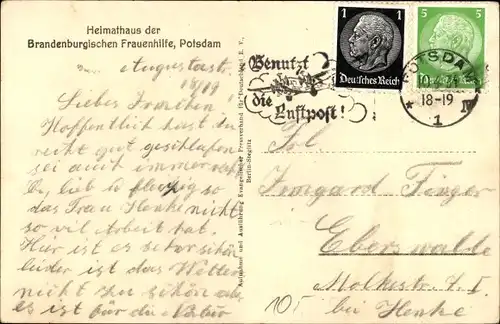 Heimathaus der
Brandenburgischen Frauenhilfe, Potsdam
Augustastr.
18/19
Liebes Irmchen!
Hoffentlich hast du
recht gut geschlafen
sei auch immer recht
lieb u fleißig so
das Frau Henke nicht
so vil Arbeit hat.
Hier ist es sehr schön
leider ist das Wetter
nicht zu schön aber
es ist für die Natur
Aufnahme und Ausführung Evangelischer Presseverband für Deutschland E. V.,
Berlin-Steglitz
Benutzt
die Luftpost!
1 1
Deutsches Reich
5 5
Deutsches Reich
POTSDAM
18-19
* 1
Frl
Irmgard Finger
Eberswalde
Moltkestr.
bei Henke